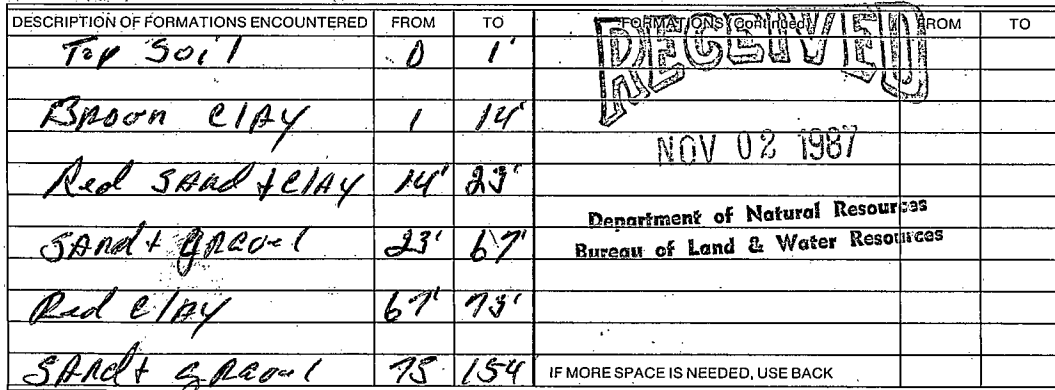 DESCRIPTION OF FORMATIONS ENCOUNTERED FROM TO FORMATIONS (Continued) FROM TO
Top Soil 0 1'
RECEIVED
Brown Clay 1 14'
NOV 02 1987
Red Sand + Clay 14' 23'
Department of Natural Resources
Sand + gravel 23' 67'
Bureau of Land & Water Resources
Red Clay 67' 75'
Sand + gravel 75 154 IF MORE SPACE IS NEEDED, USE BACK